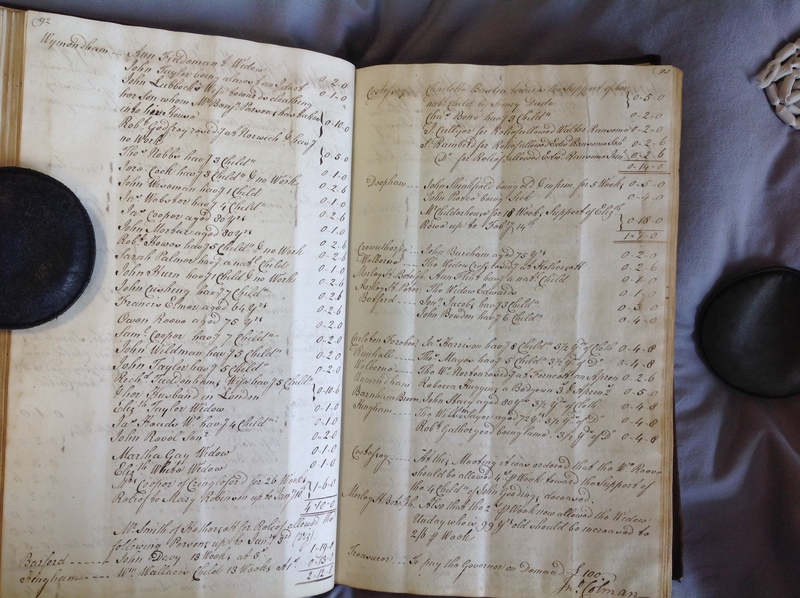 92
Wymondham Ann Tuddenham Widow 0-2-0
John Taylor being almost an Ideot 0-1-0
John Lubbock's Wife towards cloathing
her Son whom Mr Benjn Parsons has taken
into his house 0-10-0
Robt Godfrey resdg at Norwich & havg
no Work 0-5-0
Thos Nobbs havg 3 Childn 0-1-0
Jere Cook havg 3 Childn & no Work 0-2-6
John Wiseman havg 1 Child 0-1-0
Jas Webster havg 4 Childn 0-2-6
Jas Cooper aged 80 Yrs 0-1-0
John Morter aged 80 Yrs 0-2-6
Robt Howes havg 5 Childn & no Work 0-2-6
Sarah Palmer havg a natl Child 0-1-0
John Burn havg 1 Child & no Work 0-2-6
John Cushing havg 7 Childn 0-2-6
Francis Elmer aged 64 Yrs
Owen Reeve aged 75 Yrs 0-2-0
Saml Cooper havg 7 Childn 0-2-0
John Wildman havg 5 Childn 0-2-0
John Taylor havg 5 Childn 0-2-0
Richd Tuddenham's Wife havg 5 Childn
& her Husband in London 0-10-6
Elizth Taylor Widow 0-1-0
Jas Howes W. havg 4 Childn 0-1-0
John Revel Senr 0-2-0
Martha Gay Widow 0-1-0
Elizth Widow 0-1-0
Mrs Cooper of Cringleford for 26 Weeks
Relief to Mary Robinson up to Janry 1-6-0
4-10-0
Mr Smith of Hethersett for Relief allowed the
following Persons up to Janry 3rd
Barford John Davy 13 Weeks at
Hingham Wm Wallace's Child 13 Weeks at
2-12-0
Costessey Charlotte towards the Support of her
natl Child by Henry 0-5-0
Chas Benn havg 3 Childn 0-2-0
J. Culley for Relief allowed Walter Ransome 0-2-0
for Relief allowed Edwd Ransome Senr 0-2-6
Do for Relief allowed Edwd Ransome Senr 0-2-6
0-14-0
Deopham John being old & infirm for 5 Weeks 0-5-0
John being Sick 0-4-0
Mr Childerhouse for 18 Weeks Support of Elizth
Reeve up to Feby 14th 0-18-0
1-7-0
Crownthorpe John Barnham aged 75 Yrs 0-2-0
The Widow resdg at Hethersett 0-2-6
Morley St Botolph Ann havg a natl Child 0-1-0
Morley St Peter The Widow Edwards 0-1-0
Barford Jacob havg 3 Childn 0-3-0
John Bowden havg 6 Childn 0-4-0
Carleton Forehoe Jas Harrison havg 8 Childn 3½ Yds of Cloth 0-4-8
Runhall Thos Mayes havg 5 Childn 3½ Yds of Do 0-4-8
Welborne The Wid. Norton resdg at Ferneaton Green 0-2-6
Wymondham Rebecca a Bedgown & Apron 0-5-0
Barnham Broom John Stacy aged 80 Yrs 3½ Yds of Cloth 0-4-8
Hingham The Widw Sayer aged 72 Yrs 3½ Yds of Do 0-4-8
Robt Gathergood being lame 3½ Yds of Do 0-4-8
Costessey At this Meeting it was ordered that the Wd Reeve
should be allowed 4s p Week toward the Support of
the 4 Childn of John Goding, deceased.
Morley St Botolph Also that the 2s p Week now allowed the Widow
who is 99 Yrs old should be increased to
2/6 p Week
Treasurer To pay the Governor on Demand £100
Jno Colman